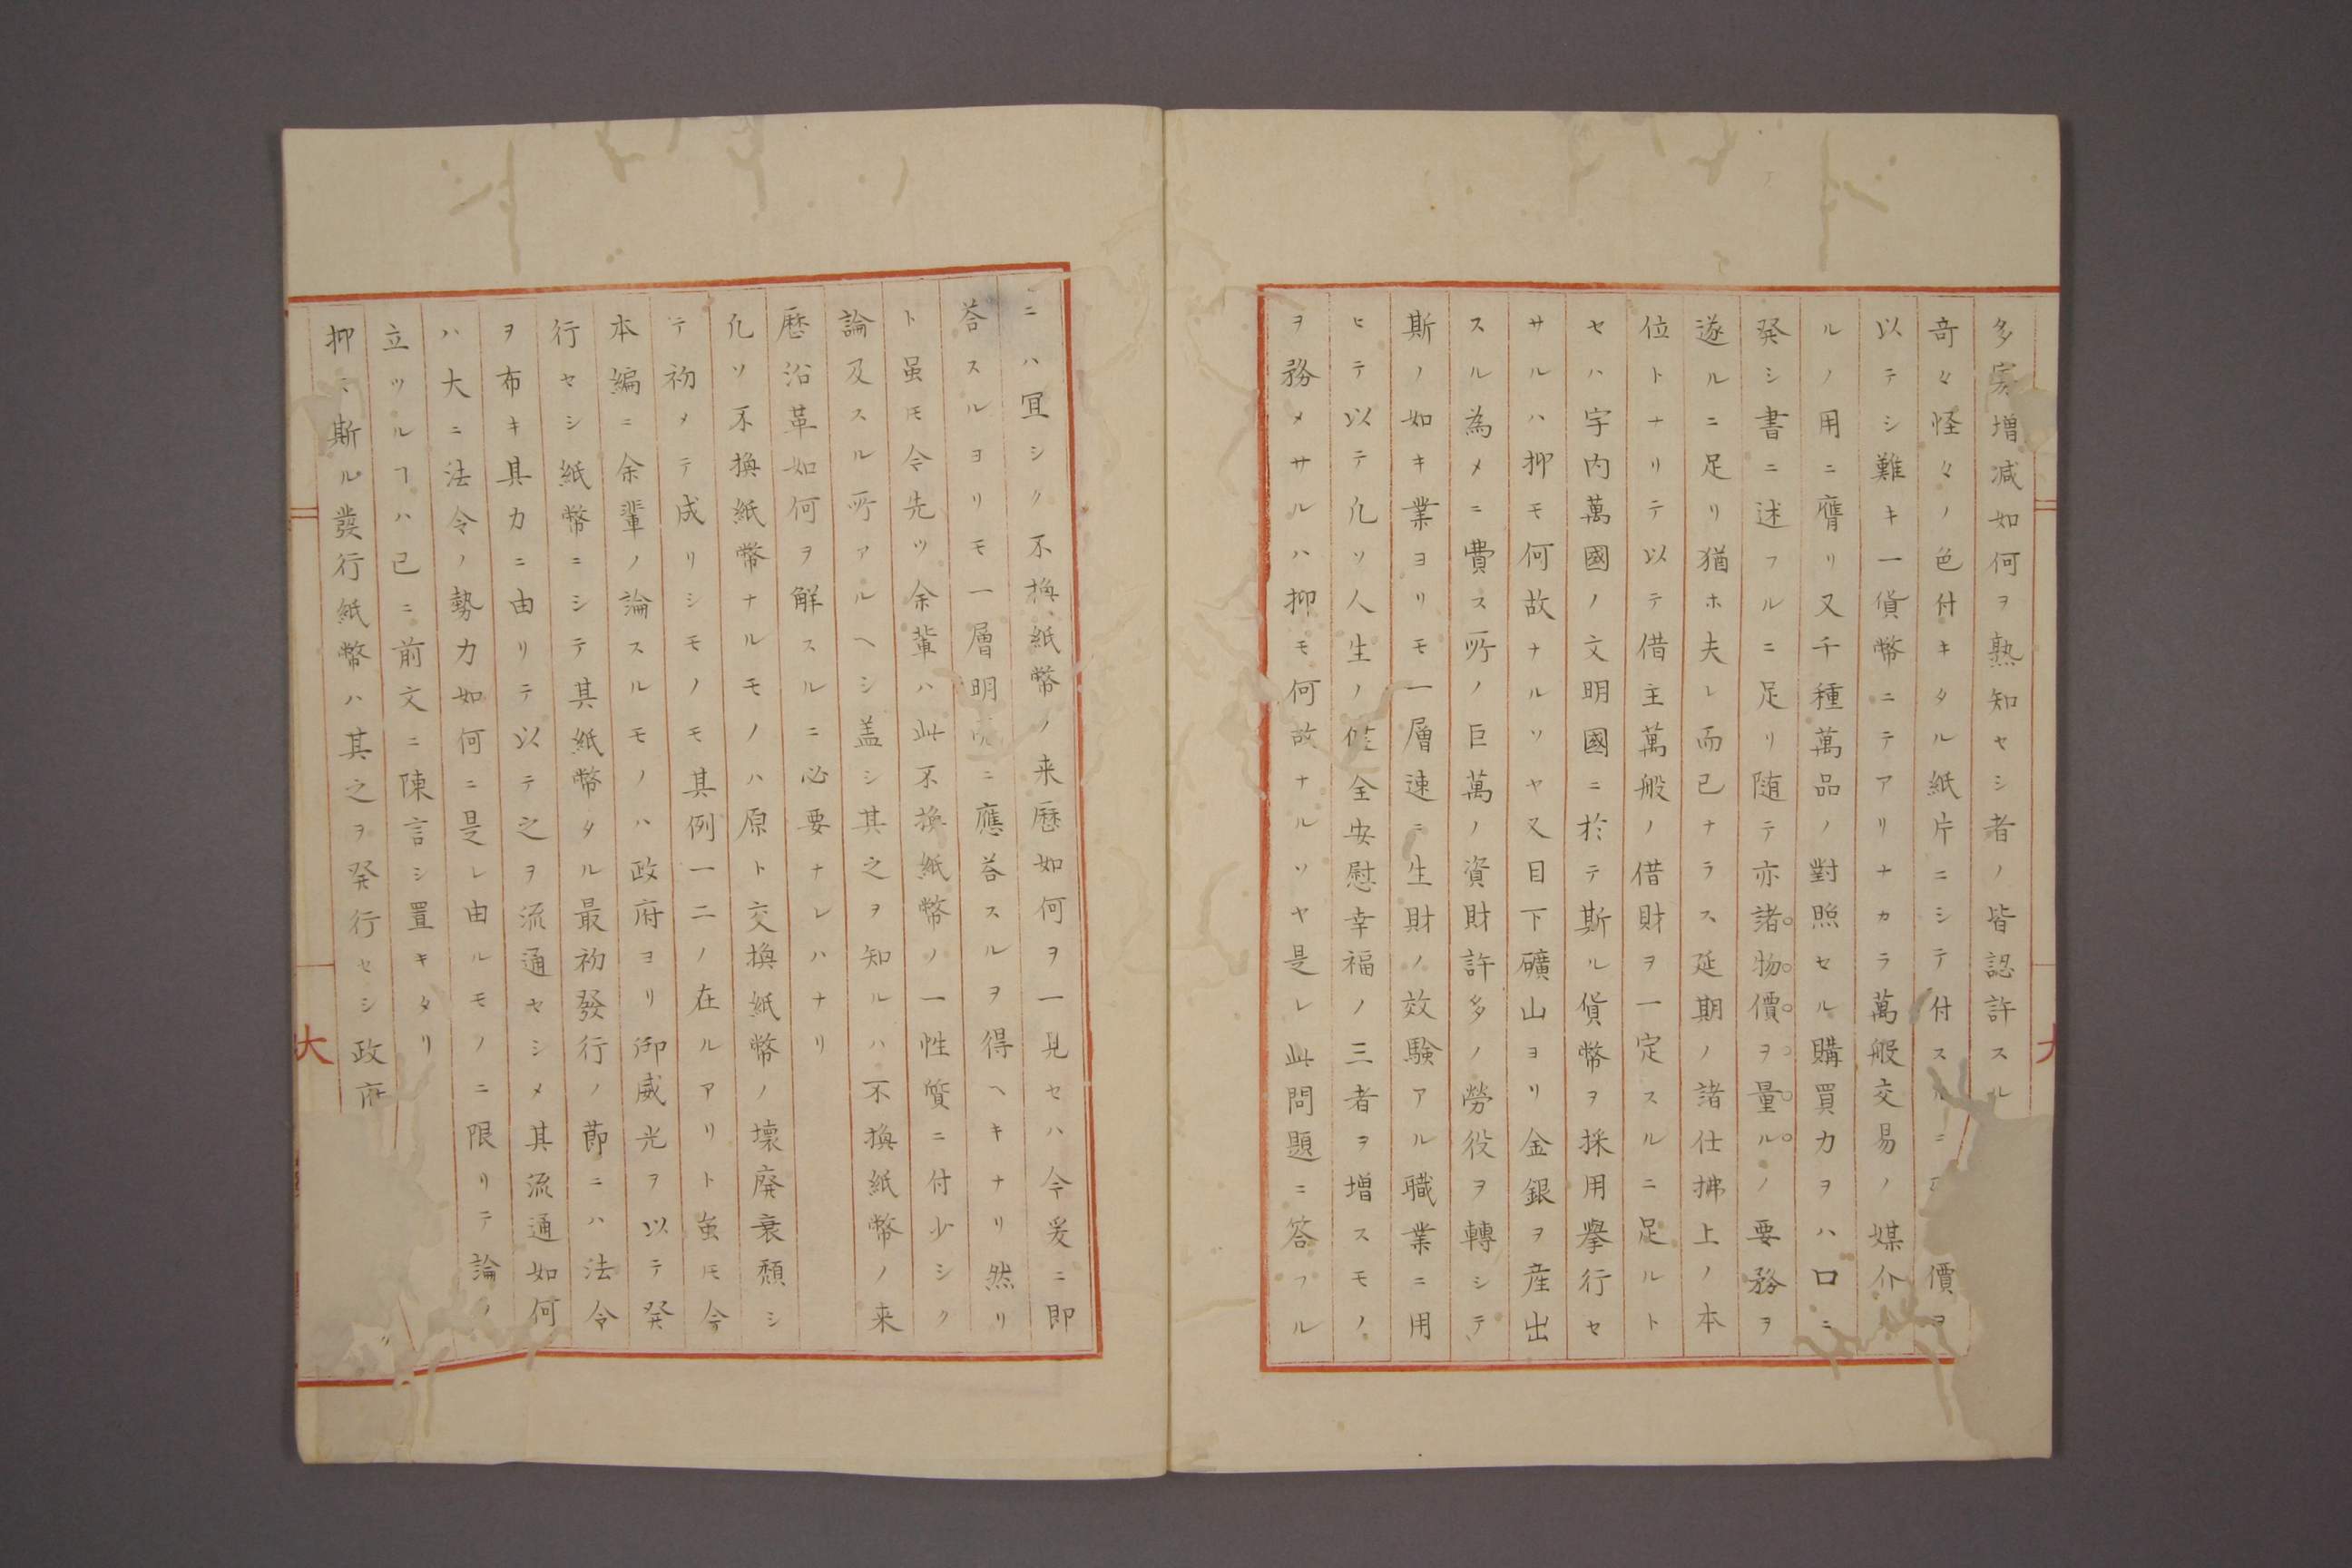 多寡増減如何ヲ熟知セシ者ノ皆認許スル
奇々怪々ノ色付キタル紙片ニシテ付スルニ 價ヲ
以テシ難キ一貨幣ニテアリナカラ萬般交易ノ媒介
ルノ用ニ膺リ又千種萬品ノ對照セル購買力ヲハ口ニ
発シ書ニ述フルニ足リ随テ亦諸物價ヲ量ルノ要務ヲ
遂ルニ足リ猶ホ夫レ而已ナラス延期ノ諸仕拂上ノ本
位トナリテ以テ借主萬般ノ借財ヲ一定スルニ足ルト
セハ宇内萬國ノ文明國ニ於テ斯ル貨幣ヲ採用擧行セ
サルハ抑モ何故ナルソヤ又目下礦山ヨリ金銀ヲ産出
スル為メニ費ス所ノ巨萬ノ資財許多ノ勞役ヲ轉シテ
斯ノ如キ業ヨリモ一層速ニ生財ノ效験アル職業ニ用
ヒテ以テ凢ソ人生ノ健全安慰幸福ノ三者ヲ増スモノ
ヲ務メサルハ抑モ何故ナルソヤ是レ此問題ニ答フル
ニハ冝シク不換紙幣ノ来歴如何ヲ一見セハ今爰ニ即
荅スルヨリモ一層明 ニ應荅スルヲ得ヘキナリ然リ
ト虽モ今先ツ余輩ハ此不換紙幣ノ一性質ニ付少シク
論及スル所アルヘシ盖シ其之ヲ知ルハ不換紙幣ノ来
歴沿革如何ヲ解スルニ必要ナレハナリ
凢ソ不換紙幣ナルモノハ原ト交換紙幣ノ壊廃衰頽シ
テ初メテ成リシモノモ其例一二ノ在ルアリト虽モ今
本編ニ余輩ノ論スルモノハ政府ヨリ御威光ヲ以テ発
行セシ紙幣ニシテ其紙幣タル最初發行ノ節ニハ法令
ヲ布キ其力ニ由リテ以テ之ヲ流通セシメ其流通如何
ハ大ニ法令ノ勢力如何ニ是レ由ルモノニ限リテ論ノ
立ツルヿハ已ニ前文ニ陳言シ置キタリ
抑ミ斯ル發行紙幣ハ其之ヲ発行セシ政府
大